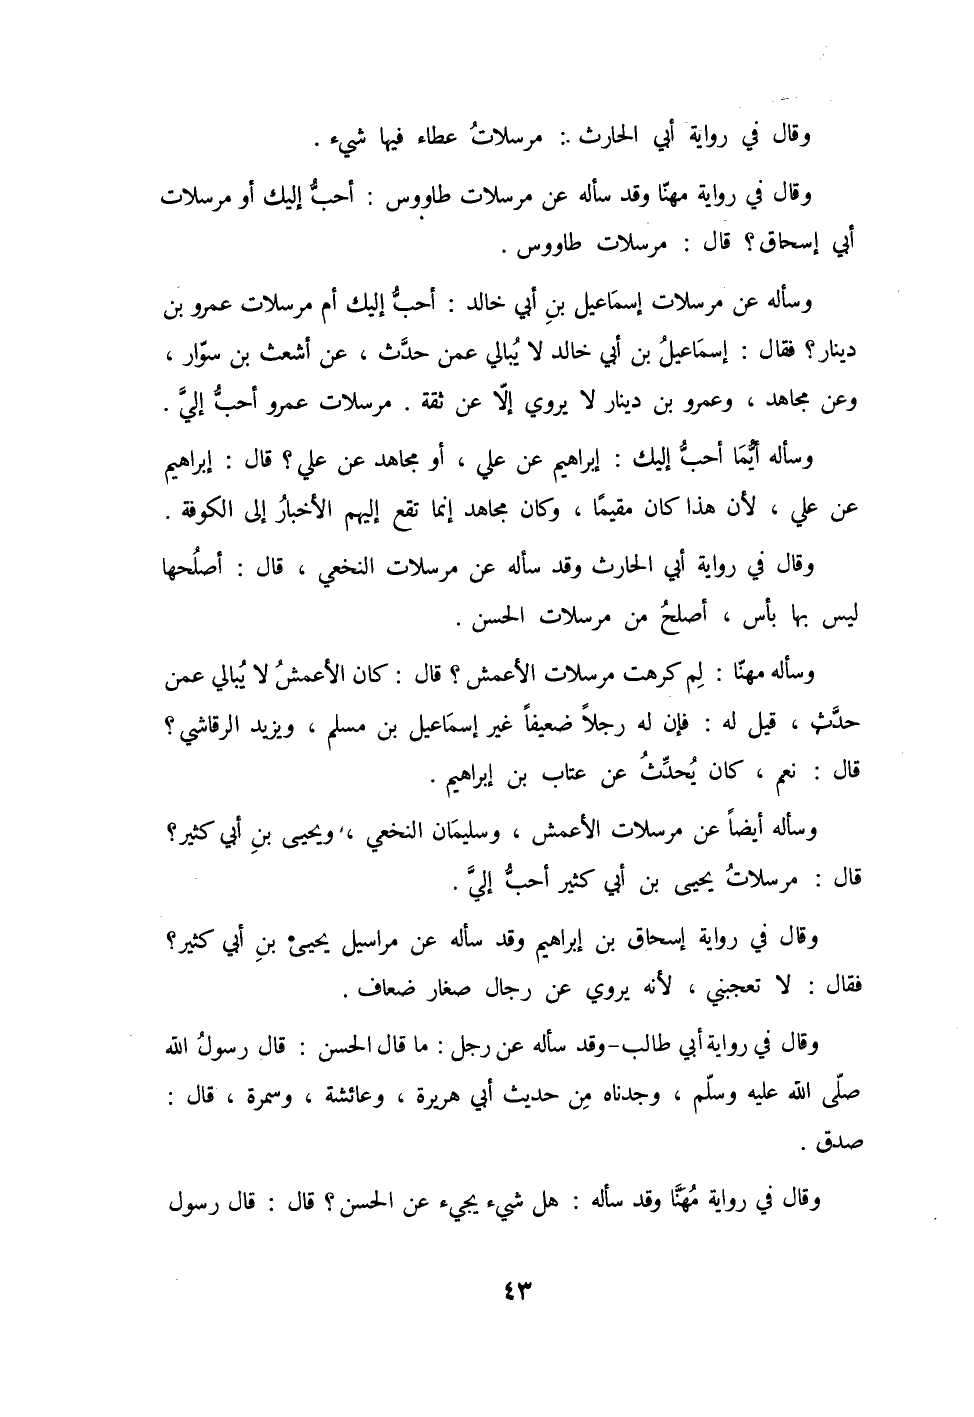 وقال في رواية أبي الحارث : مرسلاتُ عطاء فيها شيء .
وقال في رواية مهنّا وقد سأله عن مرسلات طاووس : أحبُّ إليك أو مرسلات
أبي إسحاق؟ قال : مرسلات طاووس .
وسأله عن مرسلات إسمَاعيل بنِ أبي خالد : أحبُّ إليك أم مرسلات عمرو بن
دينار؟ فقال : إسمَاعيلُ بن أبي خالد لا يُبالي عمن حدَّث ، عن أشعث بن سوّار ،
وعن مجاهد ، وعمرو بن دينار لا يروي إلّا عن ثقة . مرسلات عمرو أحبُّ إليَّ .
وسأله أيُّمَا أحبُّ إليك : إبراهيم عن علي ، أو مجاهد عن علي؟ قال : إبراهيم
عن علي ، لأن هذا كان مقيمًا ، وكان مجاهد إنما تقع إليهم الأخبارُ إلى الكوفة .
وقال في رواية أبي الحارث وقد سأله عن مرسلات النخعي ، قال : أصلُحها
ليس بها بأس ، أصلحُ من مرسلات الحسن .
وسأله مهنّا : لِم كرهت مرسلات الأعمش؟ قال : كان الأعمشُ لا يُبالي عمن
حدَّث ، قيل له : فإن له رجلاً ضعيفاً غير إسمَاعيل بن مسلم ، ويزيد الرقاشي؟
قال : نعم ، كان يُحدِّثُ عن عتاب بن إبراهيم .
وسأله أيضاً عن مرسلات الأعمش ، وسليمَان النخعي ، ويحيى بنِ أبي كثير؟
قال : مرسلاتُ يحيى بن أبي كثير أحبُّ إليَّ .
وقال في رواية إسحاق بن إبراهيم وقد سأله عن مراسيل يحيىْ بنِ أبي كثير؟
فقال : لا تعجبني ، لأنه يروي عن رجال صغار ضعاف .
وقال في رواية أبي طالب-وقد سأله عن رجل : ما قال الحسن : قال رسولُ الله
صلّى الله عليه وسلّم ، وجدناه مِن حديث أبي هريرة ، وعائشة ، وسمرة ، قال :
صدق .
وقال في رواية مُهَنَّا وقد سأله : هل شيء يجيء عن الحسن؟ قال : قال رسول
٤٣